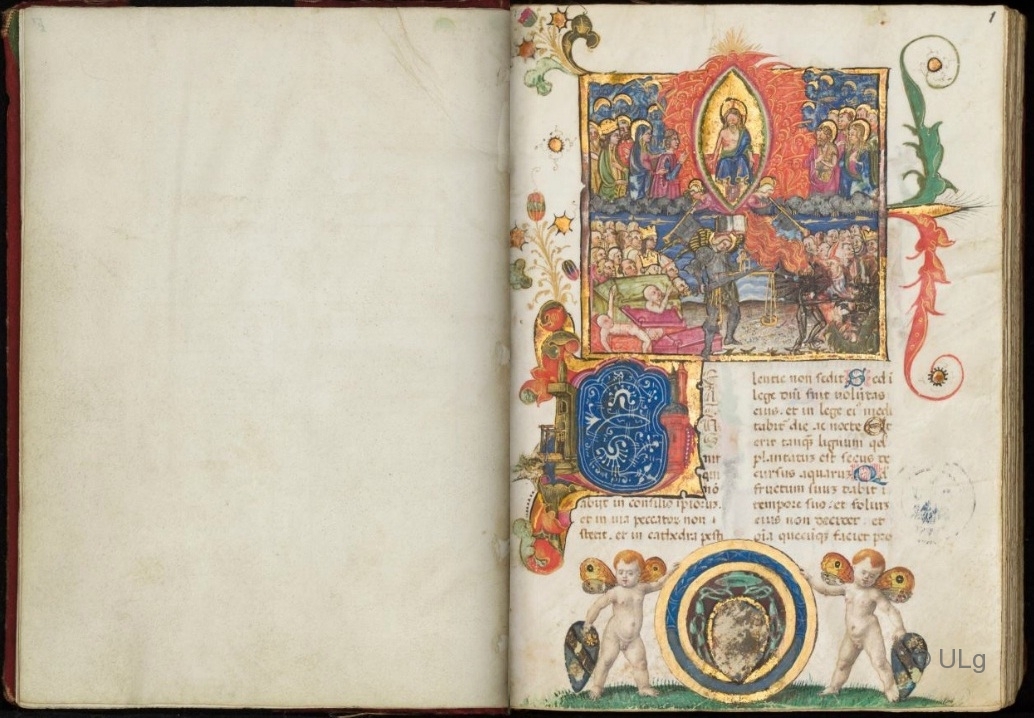 1
abijt in consilio ipiorū.
et in via peccatoꝝ non
stetit. et in cathedra pesti
lentie non sedit Sed ī
lege dn̄i fuit volūtas
eius. et in lege eiꝰ medi
tabit̄ die ac nocte Et
erit tanq̄ lignum qd
plantatus est secus de
cursus aquarum Qd
fructum suum dabit ī
tempore suo. et folium
eius non defluet. et
oīa quecūqȝ faciet pro
© ULg